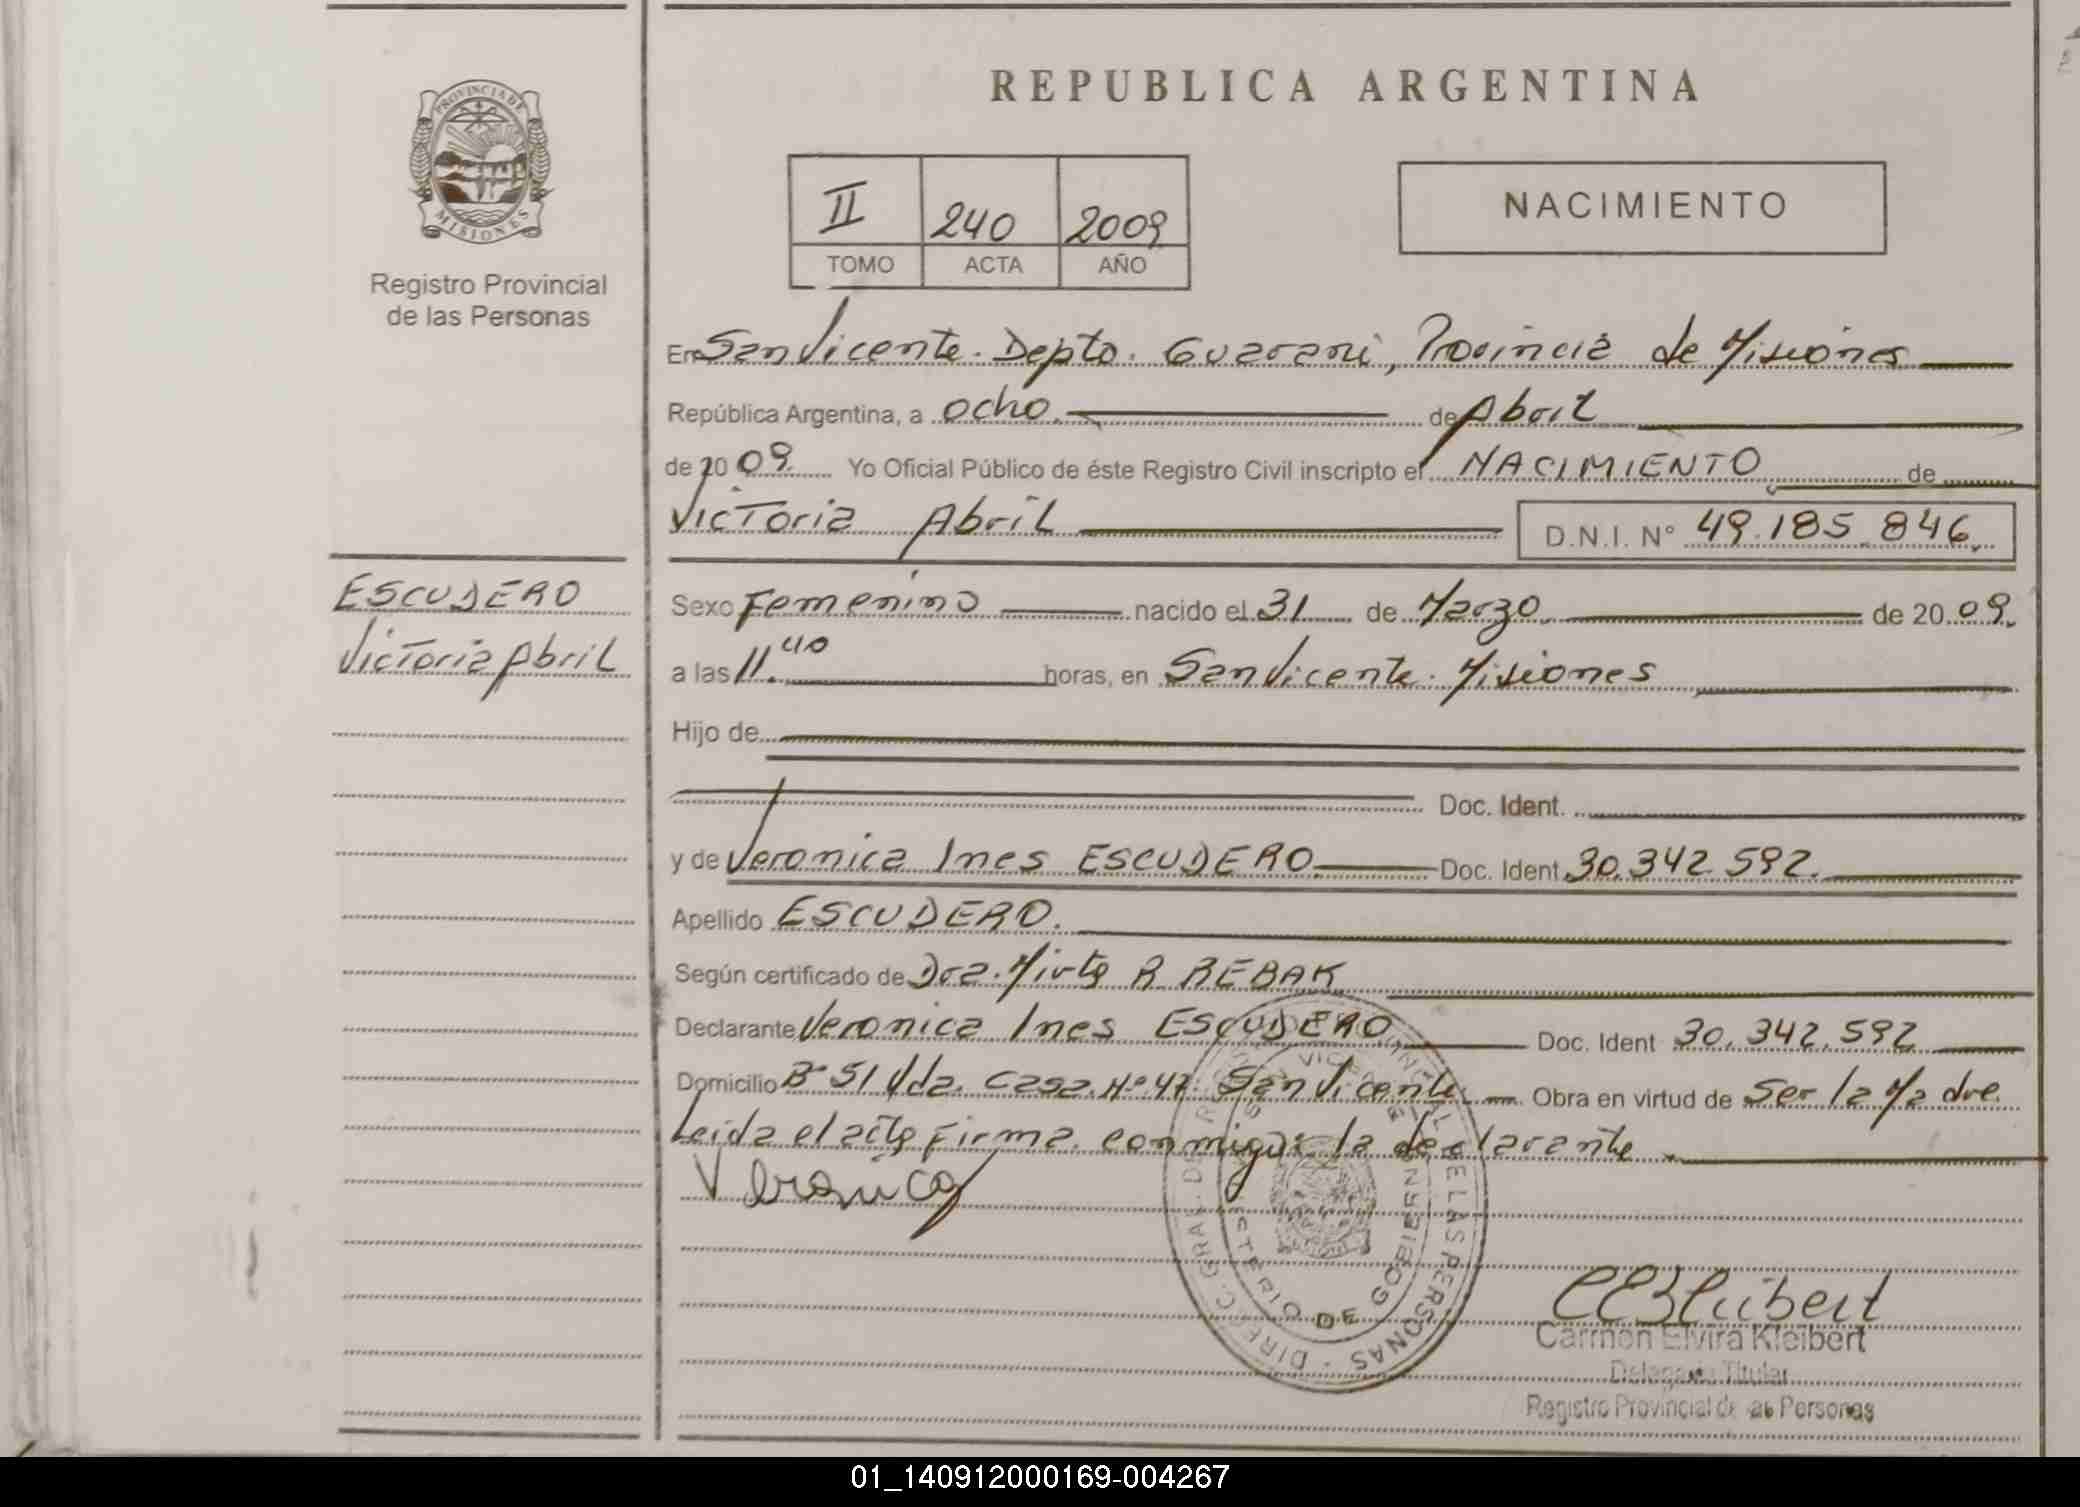 REPUBLICA ARGENTINA
PROVINCIA DE
MISIONES
Registro Provincial
de las Personas
II 240 2009
TOMO ACTA AÑO
NACIMIENTO
En San Vicente. Depto. Guarani, Provincia de Misiones
República Argentina, a ocho. de Abril
de 2009. Yo Oficial Público de éste Registro Civil inscripto el NACIMIENTO de
Victoria Abril D.N.I. N° 49.185.846.
ESCUDERO
Victoria Abril
Sexo Femenino nacido el 31 de Marzo. de 2009.
a las 11.40 horas, en San Vicente. Misiones
Hijo de
Doc. Ident.
y de Veronica Ines ESCUDERO. Doc. Ident 30.342.592.
Apellido ESCUDERO.
Según certificado de Dra. Mirta R REBAK
Declarante Veronica Ines ESCUDERO. Doc. Ident 30.342.592
Domicilio B° 51 Vda. Casa. N° 47. San Vicente. Obra en virtud de Ser la Madre.
Leida el acta firma. conmigo: la declarante.
Veronica
DIREC. GRAL. DE PROVINCIAL DE LAS PERSONAS
MINISTERIO DE GOBIERNO
CEKleibert
Carmen Elvira Kleibert
Delegada Titular
Registro Provincial de las Personas
01_140912000169-004267